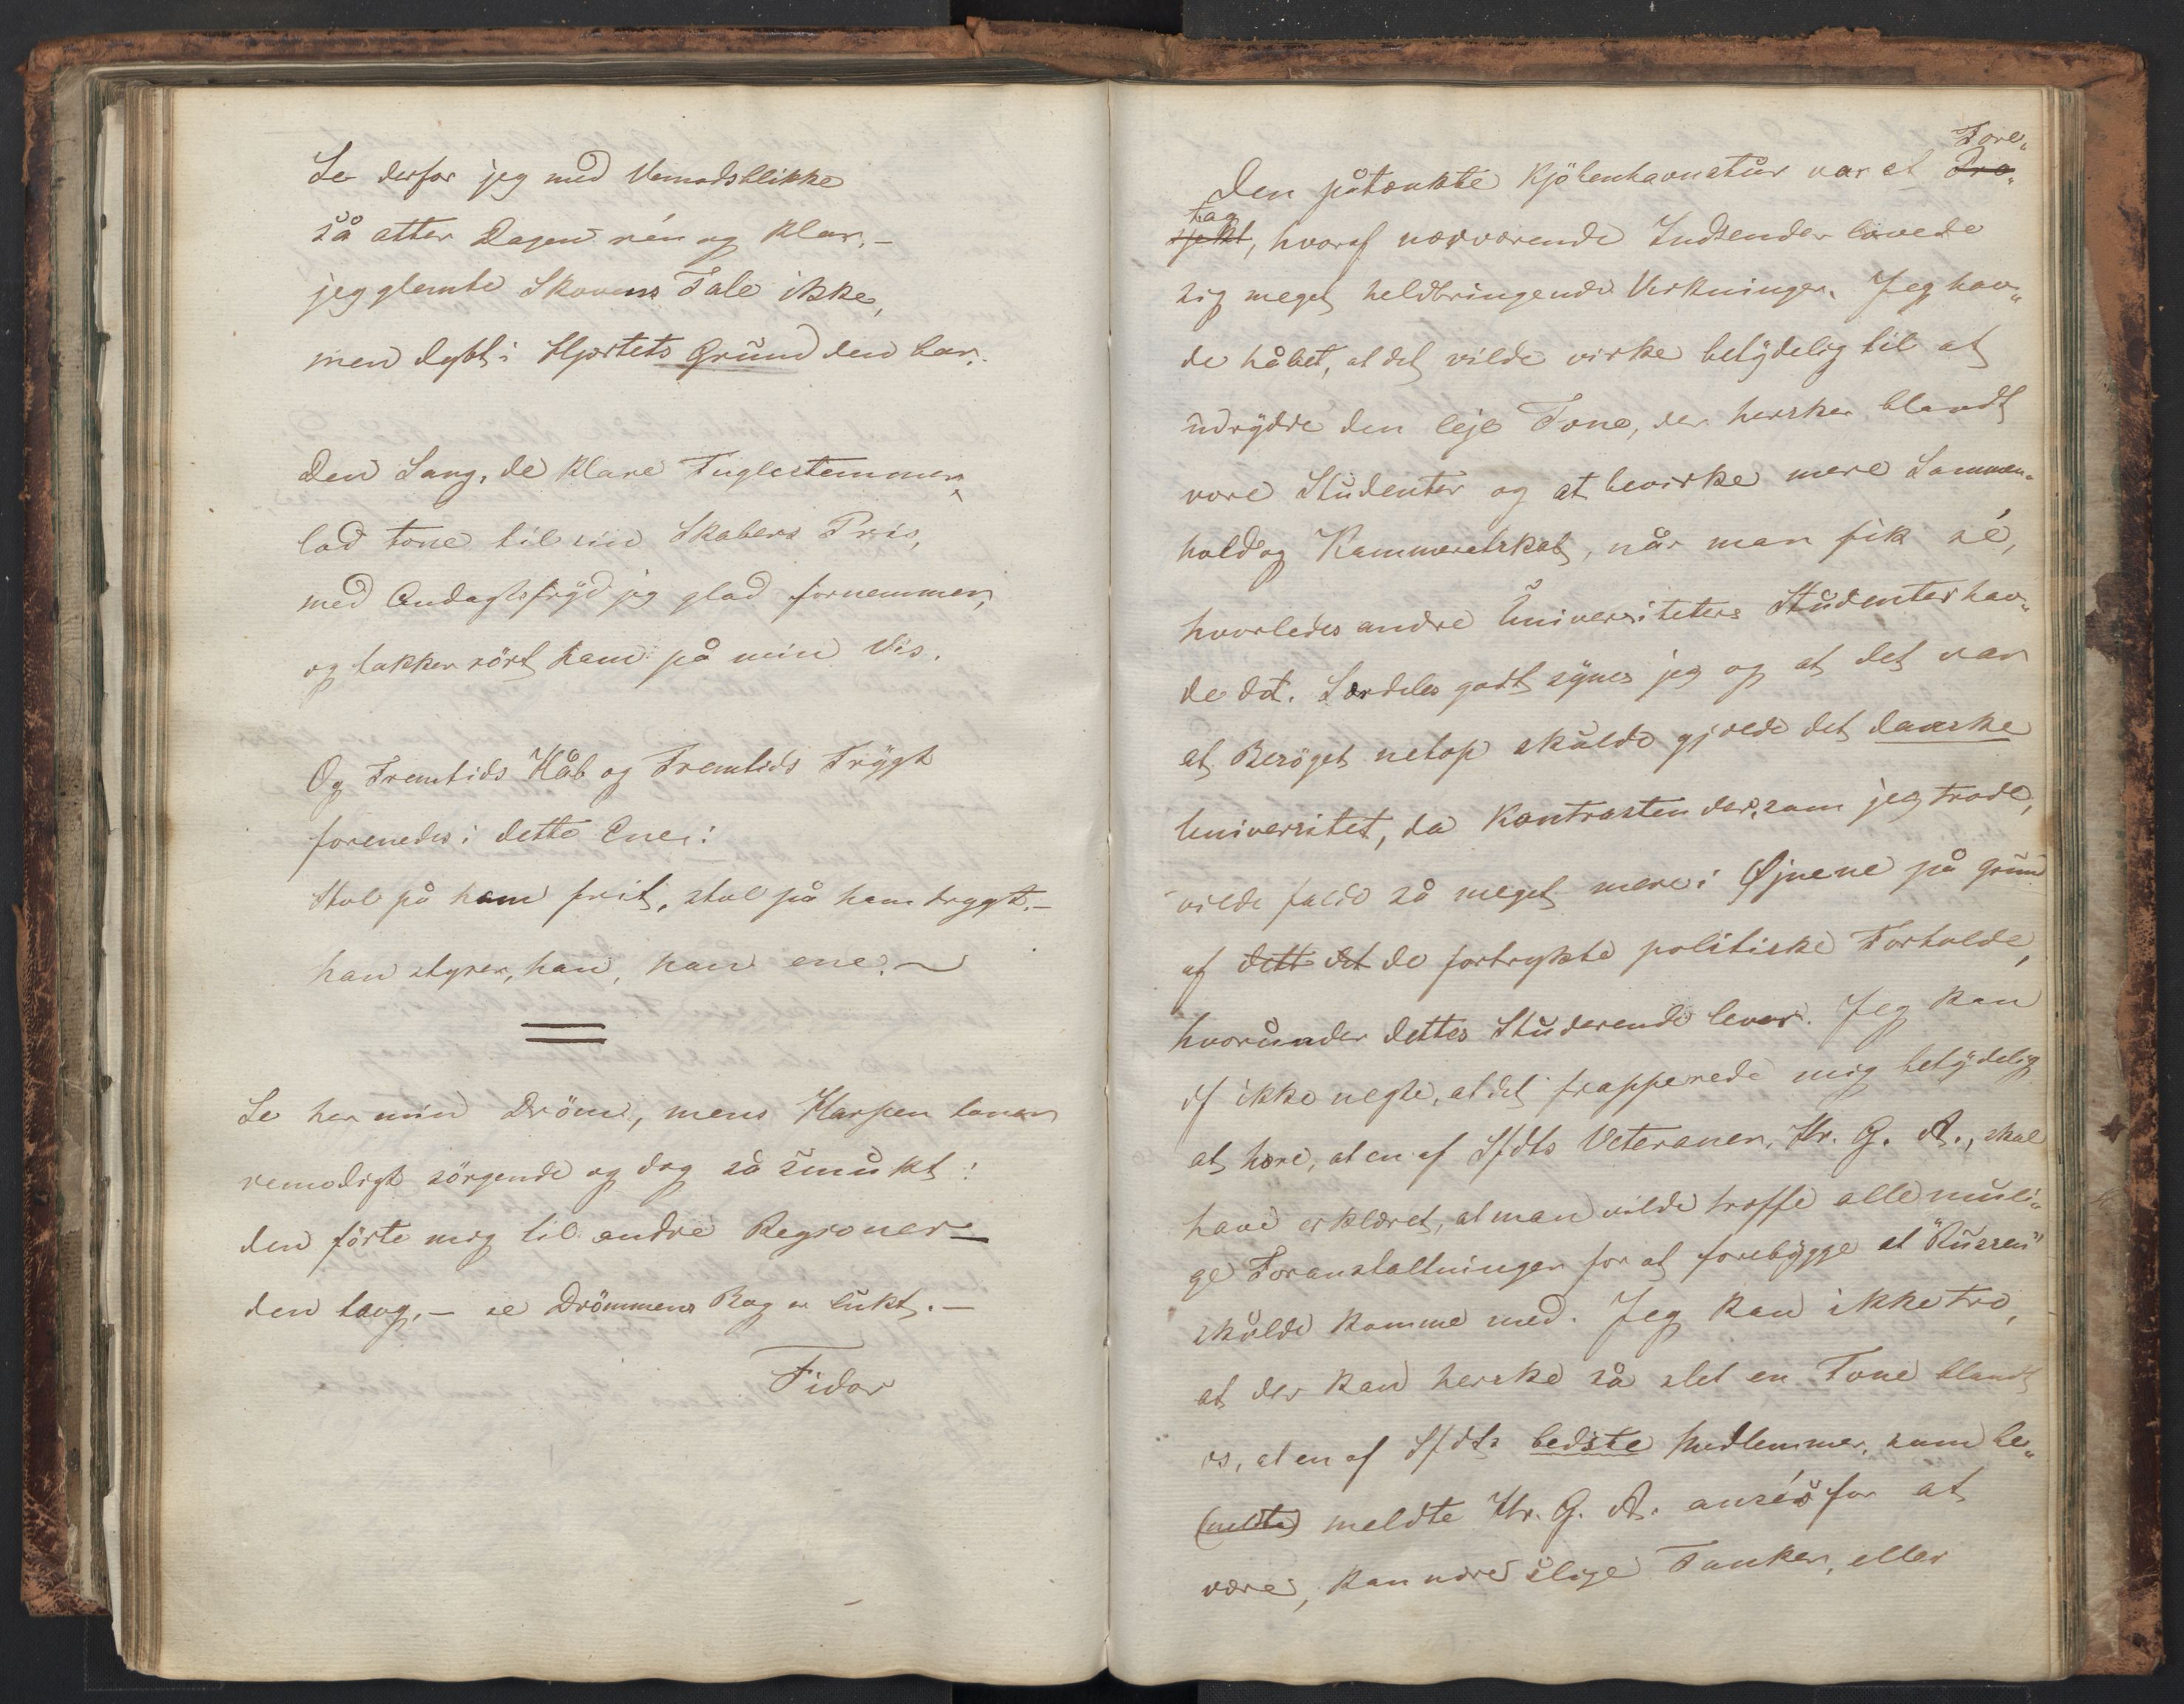 Se derfor jeg med Vemodsblikke
så atter Dagen rén og klar, –
jeg glemte Skovens Tale ikke,
men dybt i Hjertets Grund den bar.
Den Sang, de klare Fuglestemmer
lod tone til sin Skabers Pris,
med Andagtsfryd jeg glad fornemmer,
og takker rört ham på min Vis.
Og Fremtids Håb og Fremtids Frygt
forenedes i dette Ene:
Stol på ham frit, stol på ham trygt, –
han styrer, han, han ene. ~
Se her min Dröm, mens Harpen toner
vemodigt sörgende og dog så smukt:
den förte mig til andre Regioner –
den taug, – se Drömmens Bog er lukt. –
Fidor
Fore„
Den påtænkte Kjöbenhavnstur var et Pro„
tag
sjekt, hvoraf nærværende Indsender lovede
sig meget heldbringende Virkninger. Jeg hav„
de håbet, at det vilde virke betydelig til at
udrydde den leje Tone, der hersker blandt
vore Studenter og at bevirke mere Sammen„
hold og Kammeratskab, når man fik sé,
hvorledes andre Universiteters Studenter hav„
de det. Særdeles godt synes jeg og at det var
at Besöget netop skulde gjælde det danske
Universitet, da Kontrasten der, som jeg trode,
vilde falde så meget mere i Øjnene på Grund
af dette det de fortrykte politiske Forholde,
hvorunder dettes Studerende lever. Jeg kan
df ikke negte, at det frapperede mig betydelig
at høre, at en af Sfdts Veteraner, Hr. G. A., skal
have erklæret, at man vilde træffe alle muli„
ge Foranstaltninger for at forebygge at "Russen"
skulde komme med. Jeg kan ikke tro,
at der kan herske så slet en Tone blandt
os, at en af Sfdts bedste Medlemmer, som be„
(meldte) meldte Hr. G. A. ansés for at
være, kan nære slige Tanker, eller